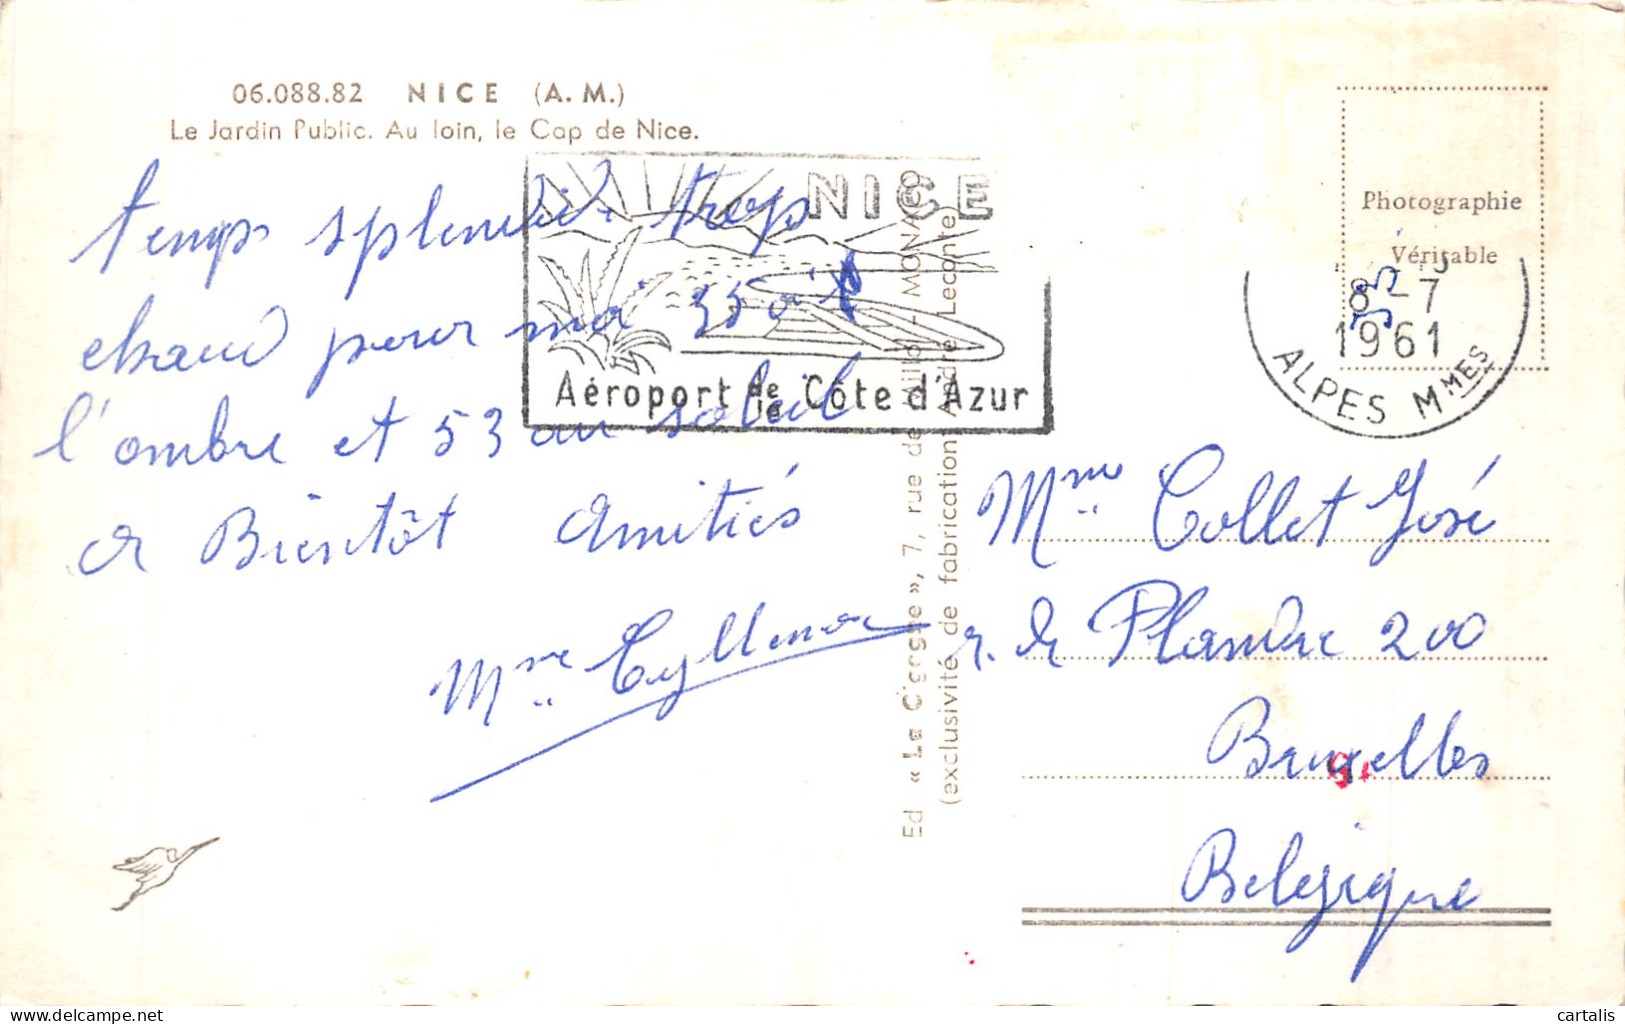 06.088.82 NICE (A. M.)
Le Jardin Public. Au loin, le Cap de Nice.
temps splendid trop
chaud pour moi 35 à
l'ombre et 53 au soleil
a Bientôt Amitiés
Mme
NICE
Aéroport de la Côte d'Azur
Ed « La Cigogne », 7, rue de Millo - MONACO
(exclusivité de fabrication André Leconte)
Photographie
Véritable
8 - 7
1961
ALPES MMES
Mme Collet José
r. de Flandre 200
Bruxelles
Belgique
delcampe.net
cartalis